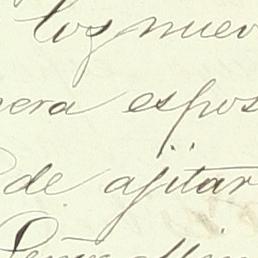 los nuev
nera espos
de ajitar